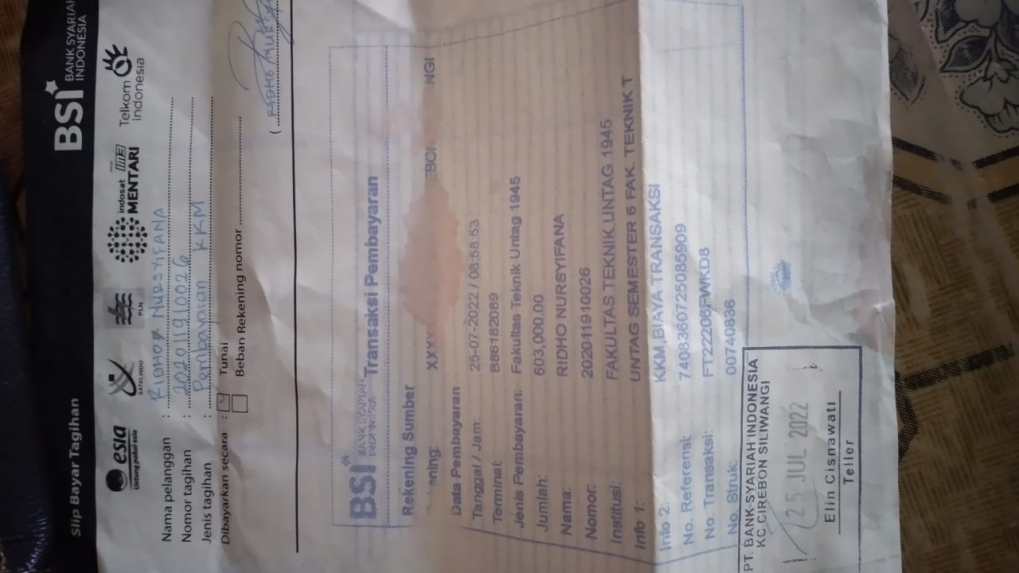 Slip Bayar Tagihan
BSI BANK SYARIAH INDONESIA
esia
Untung pakai esia
SATELINDO
PLN
indosat im3
MENTARI
Telkom
Indonesia
Nama pelanggan : RIDHO NURSYIFANA
Nomor tagihan : 202011910026
Jenis tagihan : Pembayaran KKM
Dibayarkan secara : Tunai
Beban Rekening nomor
BSI BANK SYARIAH INDONESIA Transaksi Pembayaran
Rekening Sumber
XXXX NGI
Data Pembayaran
Tanggal / Jam: 25-07-2022 / 08:58:53
Terminal: B86182089
Jenis Pembayaran: Fakultas Teknik Untag 1945
Jumlah: 603,000.00
Nama: RIDHO NURSYIFANA
Nomor: 202011910026
Institusi: FAKULTAS TEKNIK UNTAG 1945
Info 1: UNTAG SEMESTER 6 FAK. TEKNIK T
Info 2: KKM,BIAYA TRANSAKSI
No. Referensi: 740836072508​5909
No. Transaksi: FT22206PWKD8
No. Struk: 00740836
PT. BANK SYARIAH INDONESIA
KC.CIREBON SILIWANGI
25 JUL 2022
Elin Cisnawati
Teller